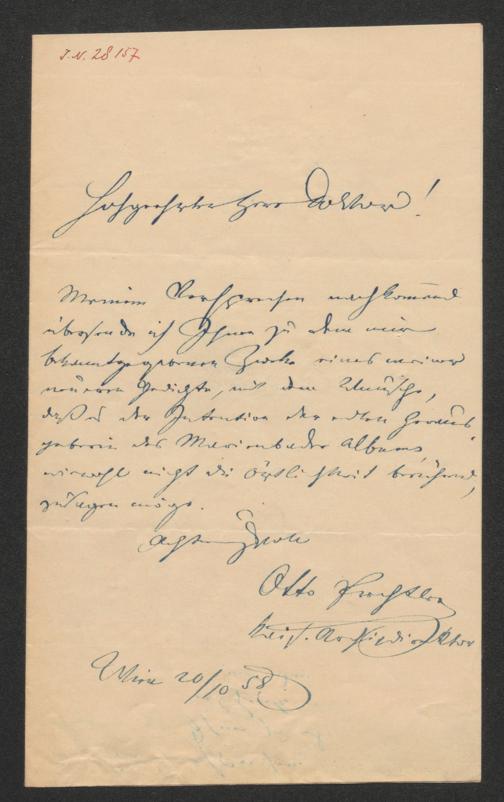 I. N. 28157
Hochgeehrter Herr Doktor!
Meinem Versprechen nachkommend
übersende ich Ihnen zu dem mir
bekanntgegebenen Zwecke eines meiner
neueren Gedichte, mit dem Wunsche,
daß es der Intention der edlen Heraus-
geberin des Marienbader Albums,
wiewohl nicht die Örtlichkeit berührend,
zusagen möge.
Achtungsvoll
Otto Prechtler
kais. Archivdirektor
Wien 20/10 58